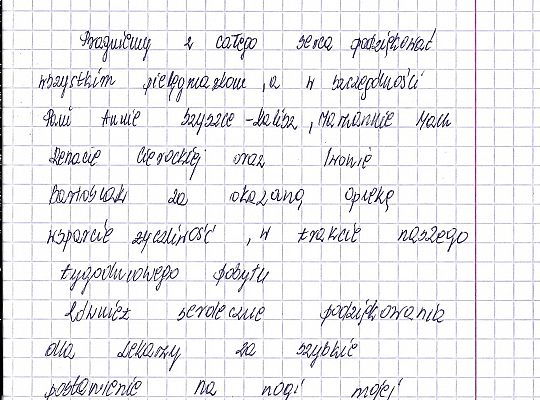 Pragniemy z całego serca podziękować
wszystkim pielęgniarkom, a w szczególności
Pani Annie Szyszce-Kalisz, Mariannie
Renacie Cierockiej oraz Iwonie
Bartosiak za okazaną opiekę
wsparcie życzliwość, w trakcie naszego
tygodniowego pobytu
Również serdeczne podziękowania
dla Lekarzy za szybkie
postawienie na nogi mojej